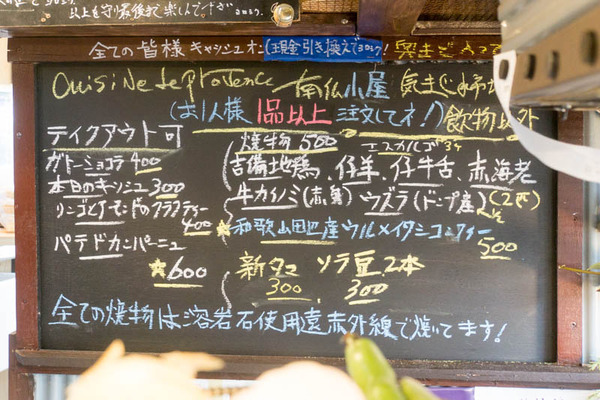 以上を守り最後まで楽しんで下さい ヨロシク!
全ての皆様 キャシュオン (現金引き換えでヨロシク)!
Cuisine de provence 南仏小屋
(お1人様 1品以上 注文してネ!) 飲物以外
テイクアウト可
ガトーショコラ 400
本日のキッシュ 300
リンゴとアーモンドのクラフティー 400
パテドカンパーニュ
★600
焼物 500
エスカルゴ
吉備地鶏、仔羊、仔牛舌、赤海老
牛カイノミ(赤身) ウズラ(ドンブ産)(2匹)
★和歌山田辺産ウルメイワシコンフィー
500
新タマ ソラ豆2本
300 300
全ての焼物は溶岩石使用遠赤外線で焼いてます!